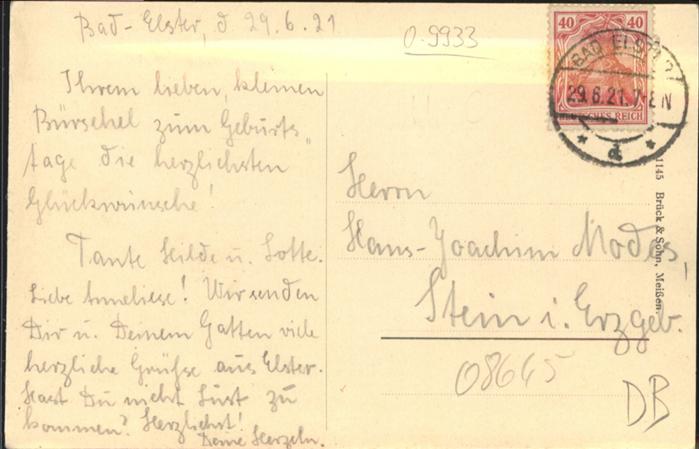 Bad-Elster, d 29.6.21
0-9933
Ihrem lieben, kleinen
Bürschel zum Geburts„
tage die herzlichsten
Glückwünsche!
Tante Hilde u. Lotte.
Liebe Anneliese! Wir senden
Dir u. Deinem Gatten viele
herzliche Grüße aus Elster.
Hast Du nicht Lust zu
kommen? Herzlichst!
Deine Herzeln.
40 40
DEUTSCHES REICH
BAD ELSTER
29.6.21. 7-8 N
* d *
Herrn
Hans-Joachim Modes,
Stein i. Erzgeb.
08645
DB
1145 Brück & Sohn, Meißen.